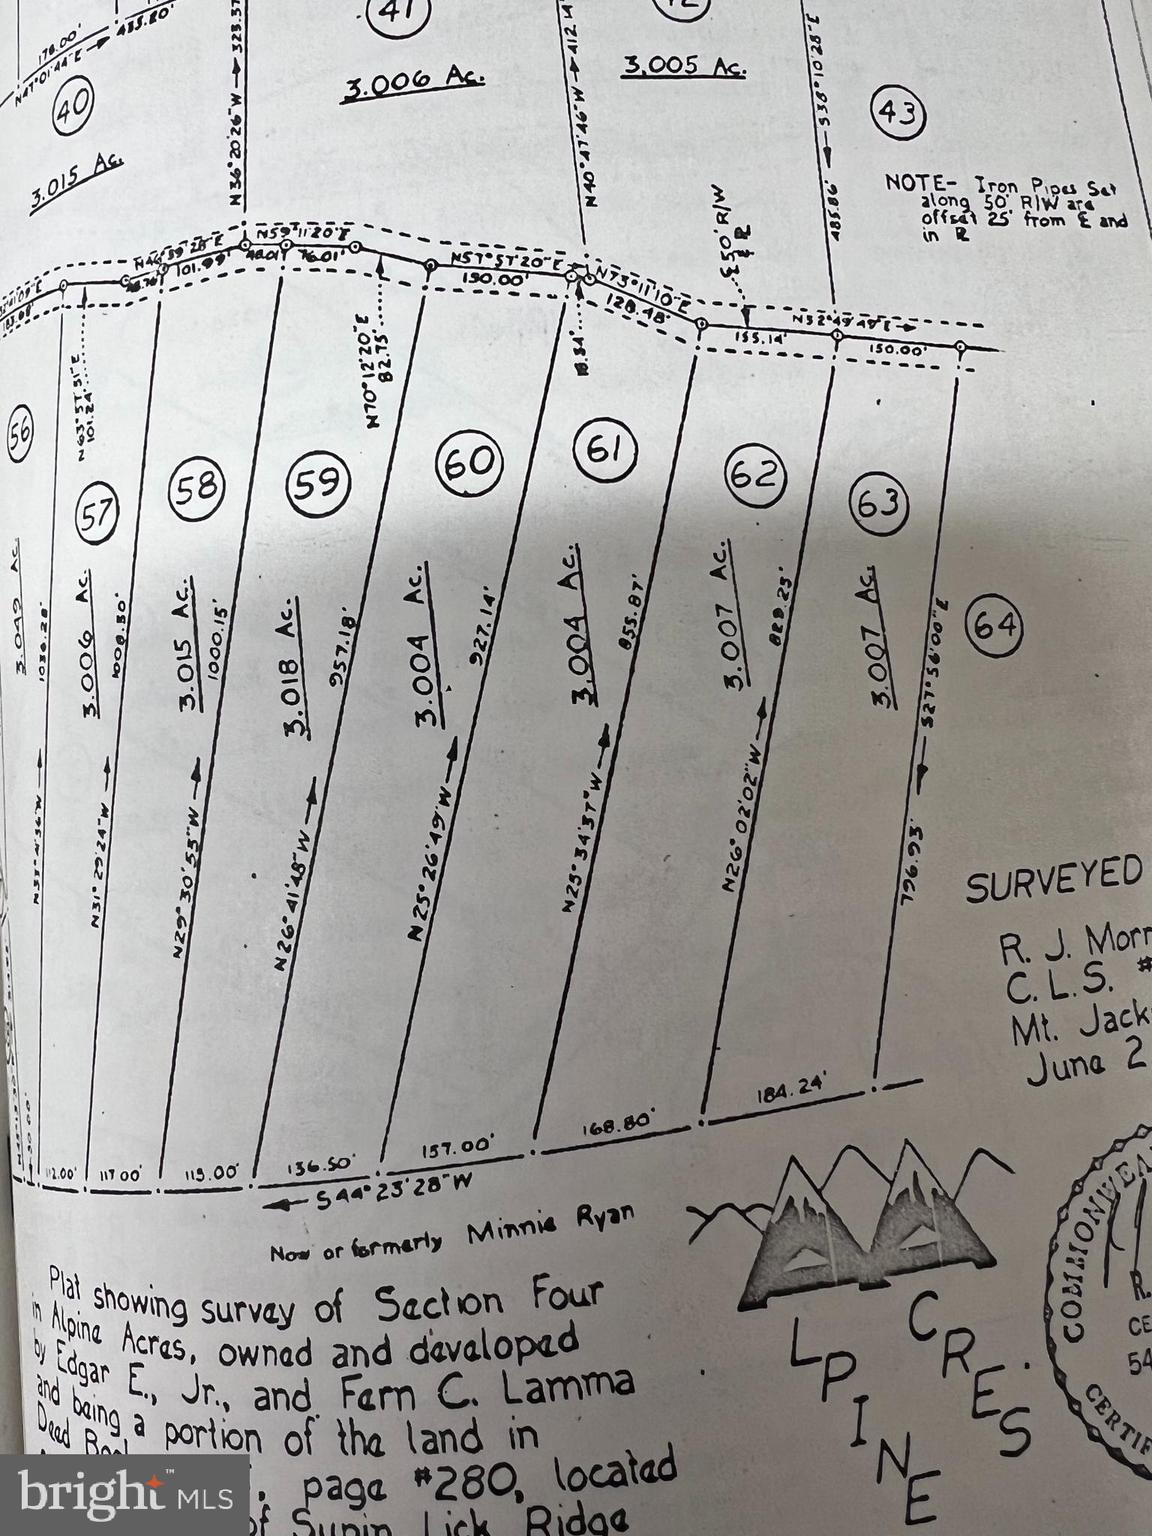 176.00'
N47°01'44"E → 435.20'
40
3.015 Ac.
N36°20'26"W → 323.37
41
3.006 Ac.
412.14'
N40°47'46"W →
3.005 Ac.
S38°10'28"E
485.86'
43
NOTE- Iron Pipes Set
along 50' R/W are
offset 25' from ₠ and
in
50' R/W
101.99'
48.01'
N59°11'20"E
76.01'
N57°57'20"E →
150.00'
N73°11'10"E
128.48'
155.14'
150.00'
N63°57'51"E
101.24'
N70°12'20"E
82.75'
18.54'
56
57
58
59
60
61
62
63
64
3.049 Ac.
1036.28'
3.006 Ac.
1008.30'
3.015 Ac.
1000.15'
3.018 Ac.
957.18'
3.004 Ac.
927.14'
3.004 Ac.
855.87'
3.007 Ac.
828.25'
3.007 Ac.
S27°56'00"E
796.93'
N31°29'24"W →
N29°30'55"W →
N26°41'48"W →
N25°26'49"W →
N25°34'37"W →
N26°02'02"W →
112.00'
117.00'
115.00'
136.50'
157.00'
168.80'
184.24'
← S44°23'28"W
Now or formerly Minnie Ryan
SURVEYED
R. J. Morr
C.L.S. #
Mt. Jack
June 2
Plat showing survey of Section Four
in Alpine Acres, owned and developed
by Edgar E., Jr., and Fern C. Lamma
and being a portion of the land in
Deed
page #280, located
of Supin Lick Ridge
ALPINE
ACRES
COMMONWEA
R.
CE
54
CERTIF
bright™ MLS